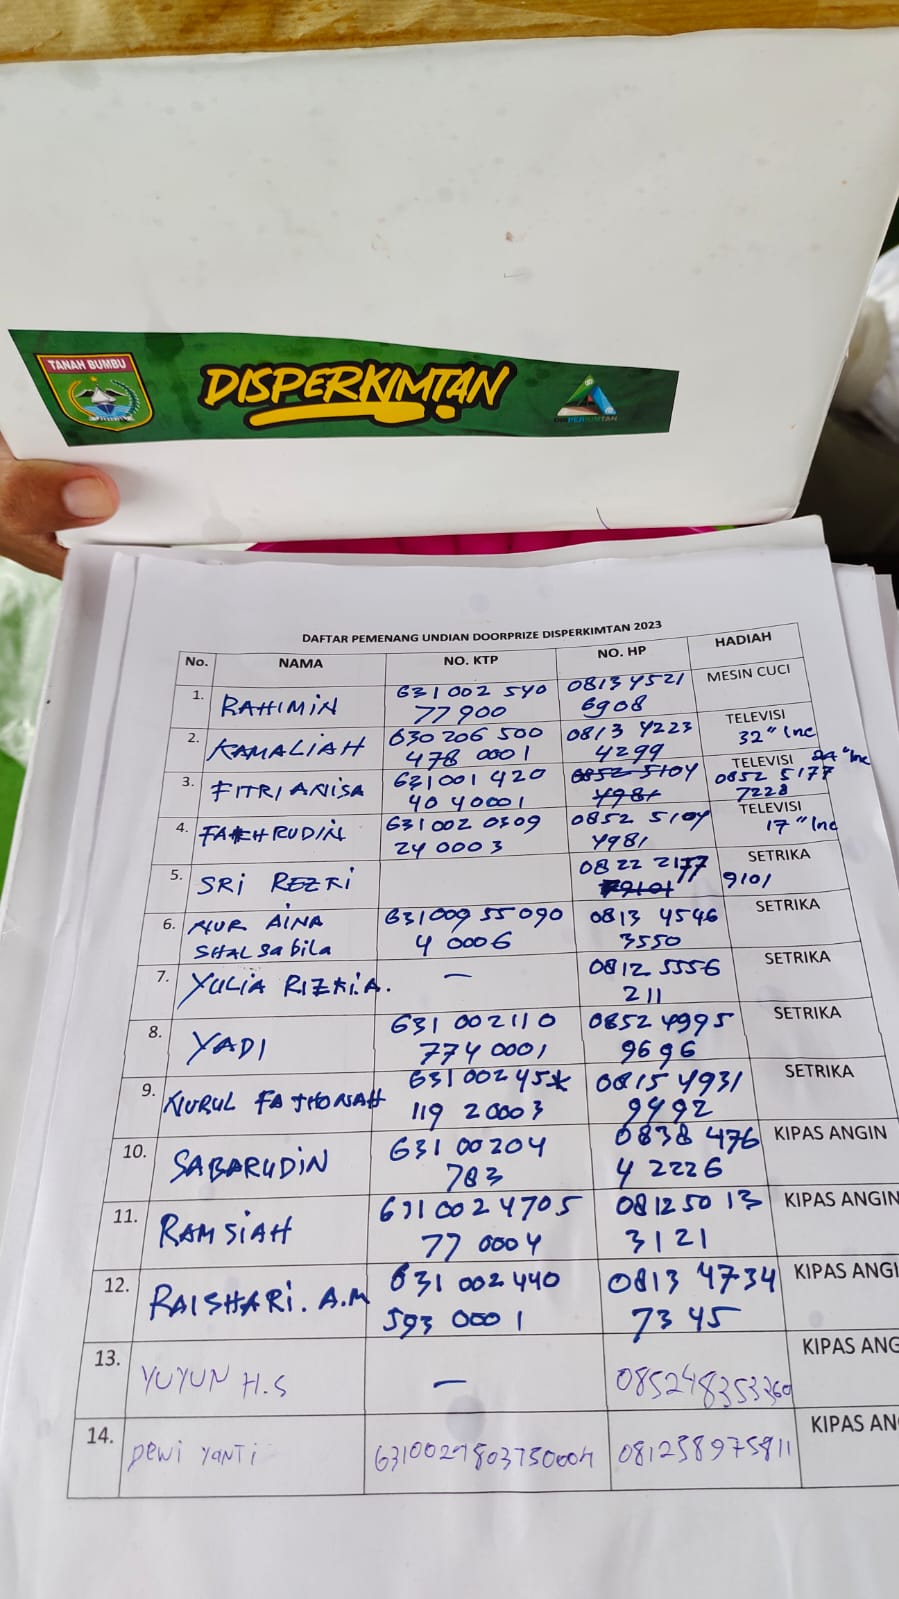 TANAH BUMBU
DISPERKIMTAN
DISPERKIMTAN
DAFTAR PEMENANG UNDIAN DOORPRIZE DISPERKIMTAN 2023
No. NAMA NO. KTP NO. HP HADIAH
1. RAHIMIN 631 002 540 0813 4521 MESIN CUCI
77900 6908
2. KAMALIAH 630206 500 0813 4223 TELEVISI
478 0001 4299 32" Inc
3. FITRI ANISA 631001 420 0852 5104 TELEVISI 24 "Inc
40 40001 4981 0852 5177
7228
4. FAKHRUDIN 631 002 0309 0852 5104 TELEVISI
24 0003 4981 17 "Inc
5. SRI REZKI 0822 2177 SETRIKA
79101 9101
6. NUR AINA 631009 55090 0813 4546 SETRIKA
SHALSabila 4 0006 3550
7. YULIA RIZKI.A. — 0812 5556 SETRIKA
211
8. YADI 631 002110 0852 4995 SETRIKA
774 0001 9696
9. NURUL FATHONAH 631 00245* 0815 4931 SETRIKA
119 20003 9492
10. SABARUDIN 631 00204 0838 476 KIPAS ANGIN
783 4 2226
11. RAMSIAH 631002 4705 081250 13 KIPAS ANGIN
77 0004 3121
12. RAISHARI. A.M 631 002 440 0813 4734 KIPAS ANGI
593 0001 7345
13. YUYUN H.S — 085248353360 KIPAS ANG
14. DEWI YANTI 6310027803750004 081258975811 KIPAS AN